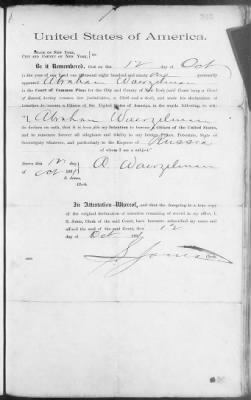 United States of America.
STATE OF NEW YORK,
CITY AND COUNTY OF NEW YORK, ss:
Be it Remembered, that on the 12 day of Oct
in the year of our Lord one thousand eight hundred and ninety personally
appeared Abraham Waenzelman
in the Court of Common Pleas for the City and County of New York (said Court being a Court
of Record, having common law jurisdiction, a Clerk and a Seal), and made his declaration of
Intention to become a Citizen of the United States of America in the words following, to wit:
"I, Abraham Waenzelman
do declare on oath, that it is bona fide my Intention to become a Citizen of the United States,
and to renounce forever all allegiance and fidelity to any foreign Prince, Potentate, State of
Sovereignty whatever, and particularly to the Emperor of Russia
of whom I am a subject
Sworn this 12 day A. Waenzelman
of Oct 189
S. Jones,
Clerk.
In Attestation Whereof, and that the foregoing is a true copy
of the original declaration of intention remaining of record in my office, I,
S. Jones, Clerk of the said Court, have hereunto subscribed my name and
affixed the seal of the said Court, this 12
day of Oct 189
S. Jones
Clerk.